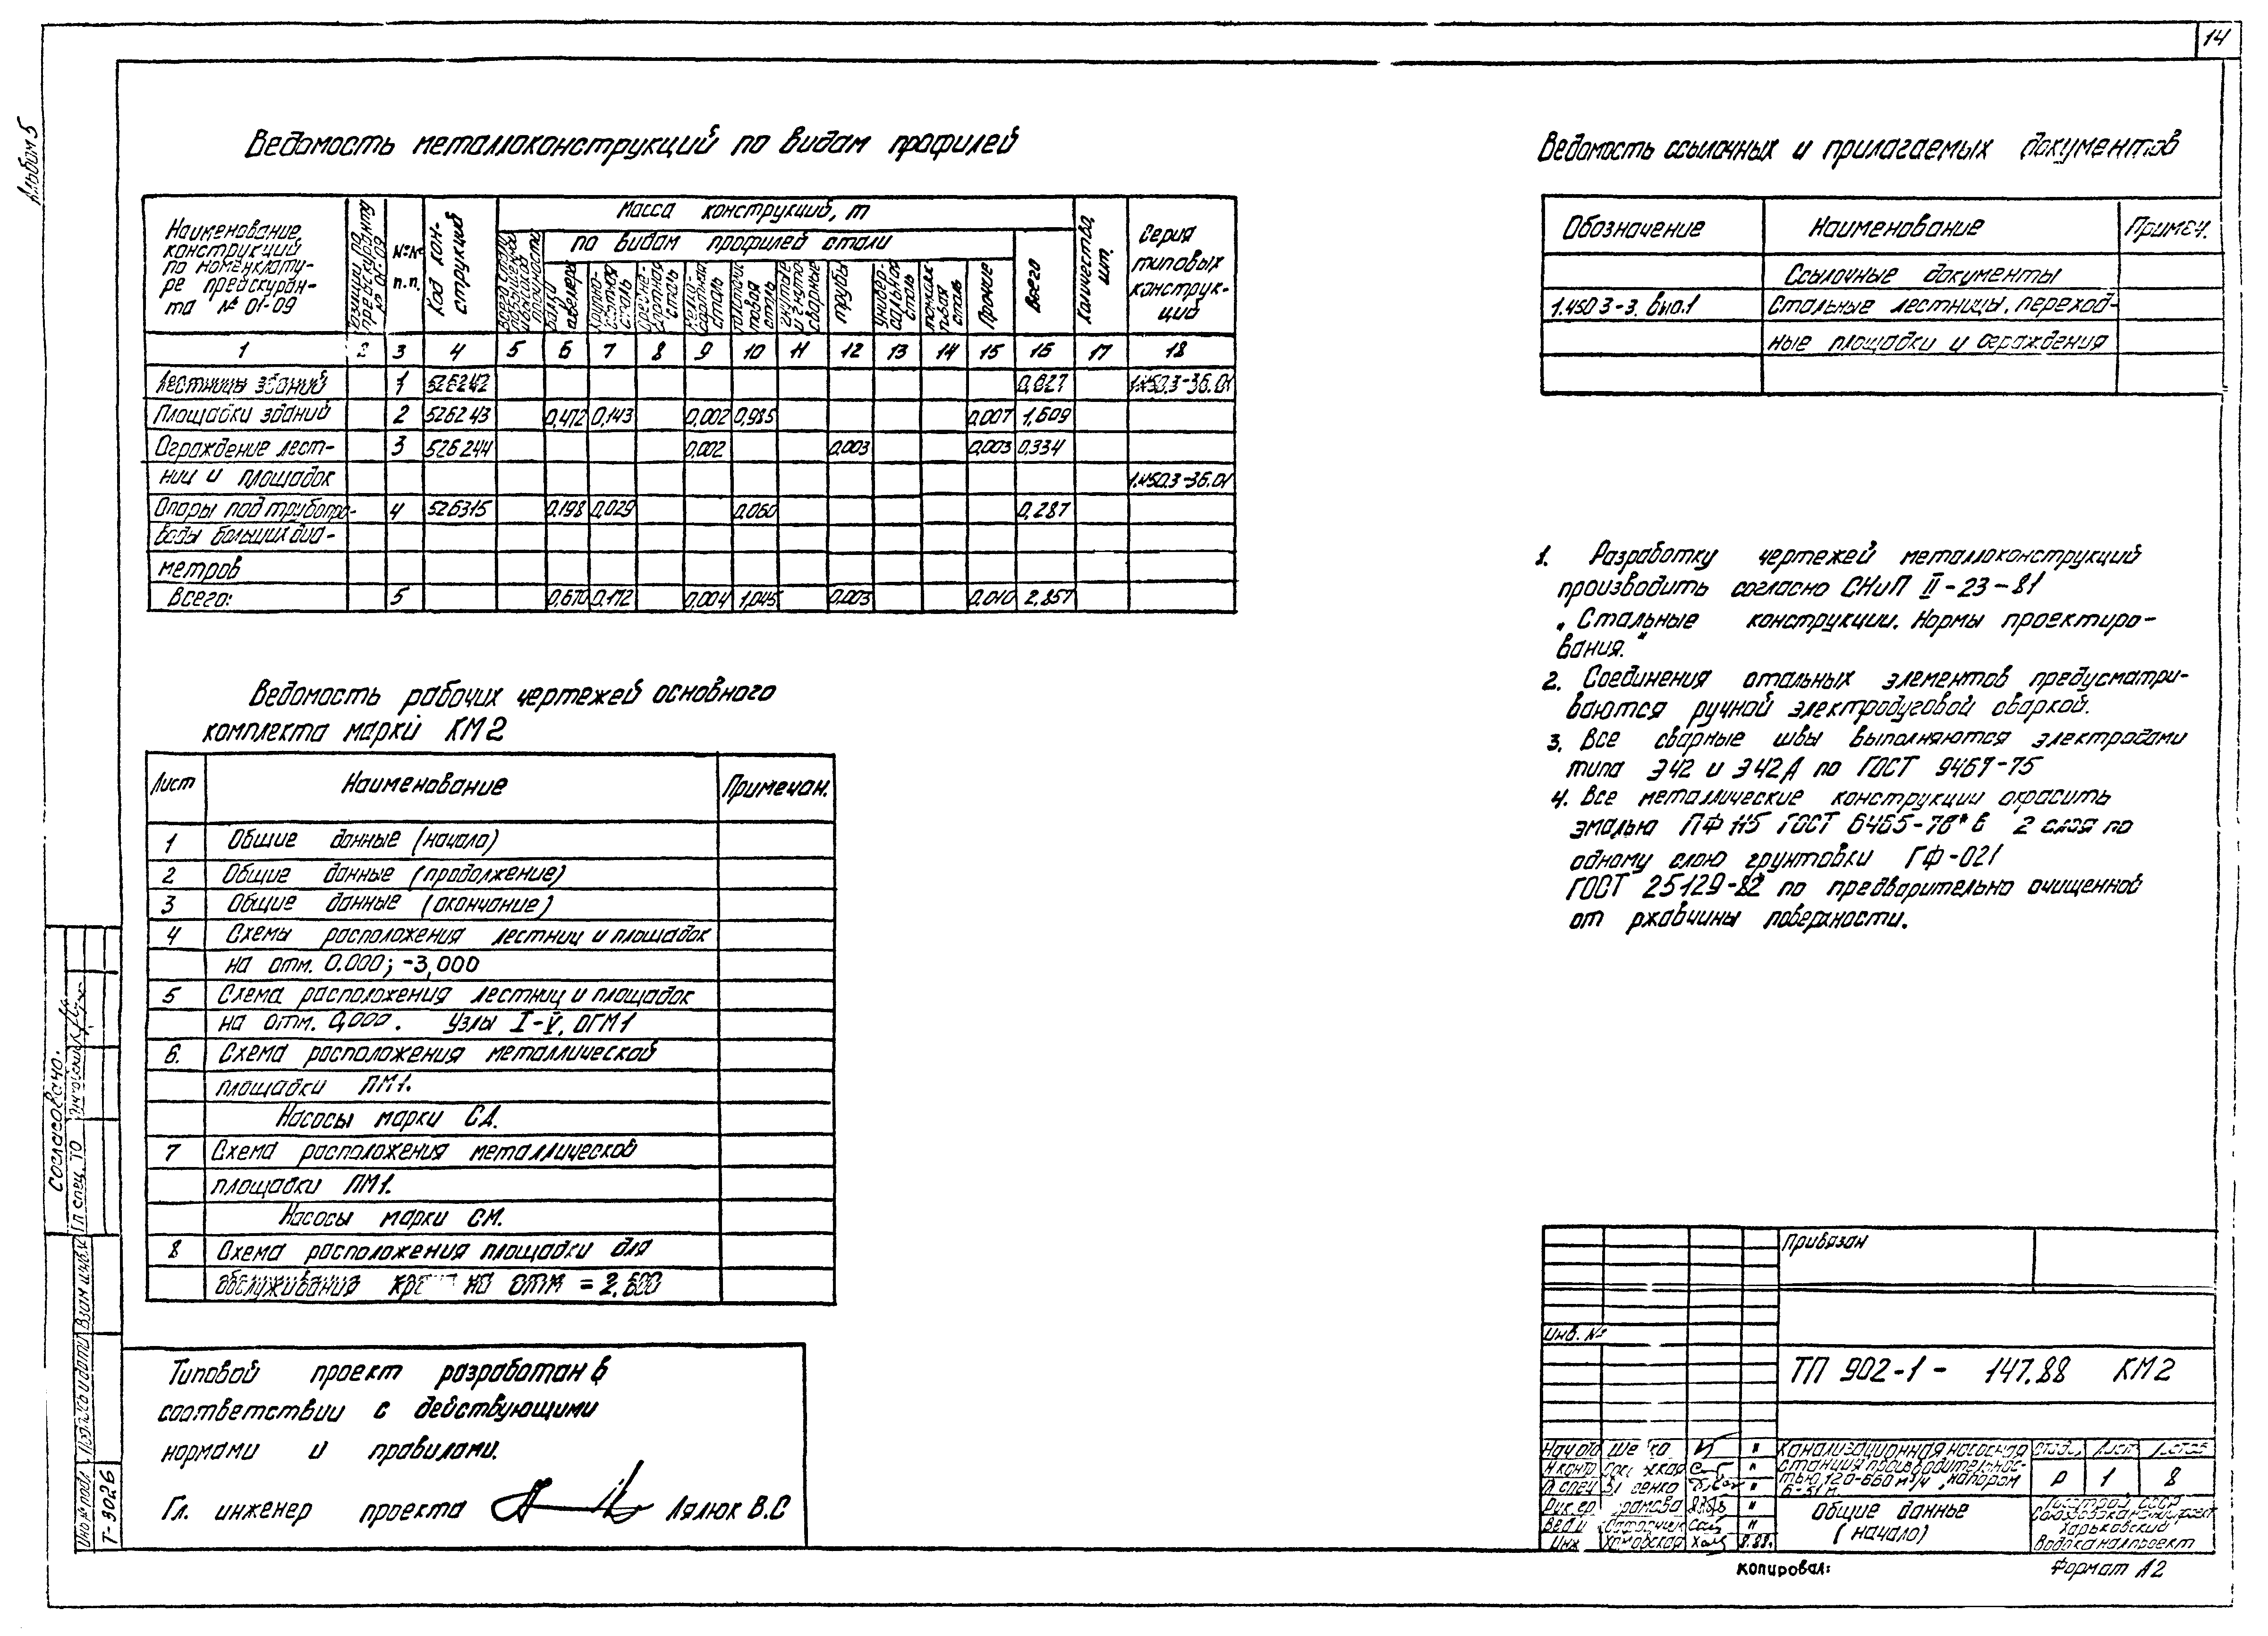 14
Альбом 5
Ведомость металлоконструкций по видам профилей
Наименование
конструкций
по номенклату-
ре прейскуран-
та № 01-09
Позиции по
прейскуранту
№ 01-09
№№
п.п.
Код кон-
струкций
Масса конструкций, т
по видам профилей стали
Балки
швеллеры
Крупно-
сортная
сталь
Средне-
сортная
сталь
Мелко-
сортная
сталь
Толстолис-
товая
сталь
трубы
Универ-
сальная
сталь
Тонколис-
товая
сталь
Прочие
Всего
Количество,
шт.
Серия
типовых
конструк-
ций
1 2 3 4 5 6 7 8 9 10 11 12 13 14 15 16 17 18
Лестницы зданий 1 526242 0,627 1.450.3-36.01
Площадки зданий 2 526243 0,472 0,143 0,002 0,985 0,007 1,609
Ограждение лест- 3 526244 0,002 0,003 0,003 0,334
ниц и площадок 1.450.3-36.01
Опоры под трубопро- 4 526315 0,198 0,029 0,060 0,287
воды больших диа-
метров
Всего: 5 0,670 0,172 0,004 1,045 0,003 0,010 2,857
Ведомость рабочих чертежей основного
комплекта марки КМ2
Лист Наименование Примечан.
1 Общие данные (начало)
2 Общие данные (продолжение)
3 Общие данные (окончание)
4 Схемы расположения лестниц и площадок
на отм. 0.000; -3,000
5 Схема расположения лестниц и площадок
на отм. 0,000. Узлы I-V, ОГМ1
6. Схема расположения металлической
площадки ПМ1.
Насосы марки СД.
7 Схема расположения металлической
площадки ПМ1.
Насосы марки СМ.
8 Схема расположения площадки для
обслуживания на отм = 2,600
Типовой проект разработан в
соответствии с действующими
нормами и правилами.
Гл. инженер проекта Лялюк В.С
Ведомость ссылочных и прилагаемых документов
Обозначение Наименование Примеч.
Ссылочные документы
1.450 3-3. вып.1 Стальные лестницы, переход-
ные площадки и ограждения
1. Разработку чертежей металлоконструкций
производить согласно СНиП II-23-81
„Стальные конструкции. Нормы проектиро-
вания."
2. Соединения стальных элементов предусматри-
ваются ручной электродуговой сваркой.
3. Все сварные швы выполняются электродами
типа Э42 и Э42А по ГОСТ 9467-75
4. Все металлические конструкции окрасить
эмалью ПФ 115 ГОСТ 6465-76* в 2 слоя по
одному слою грунтовки ГФ-021
ГОСТ 25129-82 по предварительно очищенной
от ржавчины поверхности.
Привязан
Инв. №
ТП 902-1- 147.88 КМ2
Нач отд
Н контр
Гл спец
Рук. гр
Вед и
Инж 8.88.
Канализационная насосная
станция производительнос-
тью 120-660 м³/ч, напором
6-51 м.
Стадия Лист Листов
Р 1 8
Общие данные
(начало)
Госстрой СССР
Союзводоканалпроект
Харьковский
Водоканалпроект
Копировал:
Формат А2
Согласовано:
Гл спец. ТО
Взам инв. №
Подпись и дата
Инв № подл
Т-3026